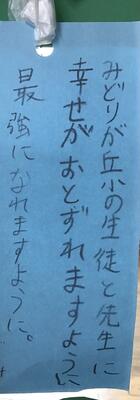 みどりが丘小の生徒と先生に
幸せがおとずれますように
最強になれますように。